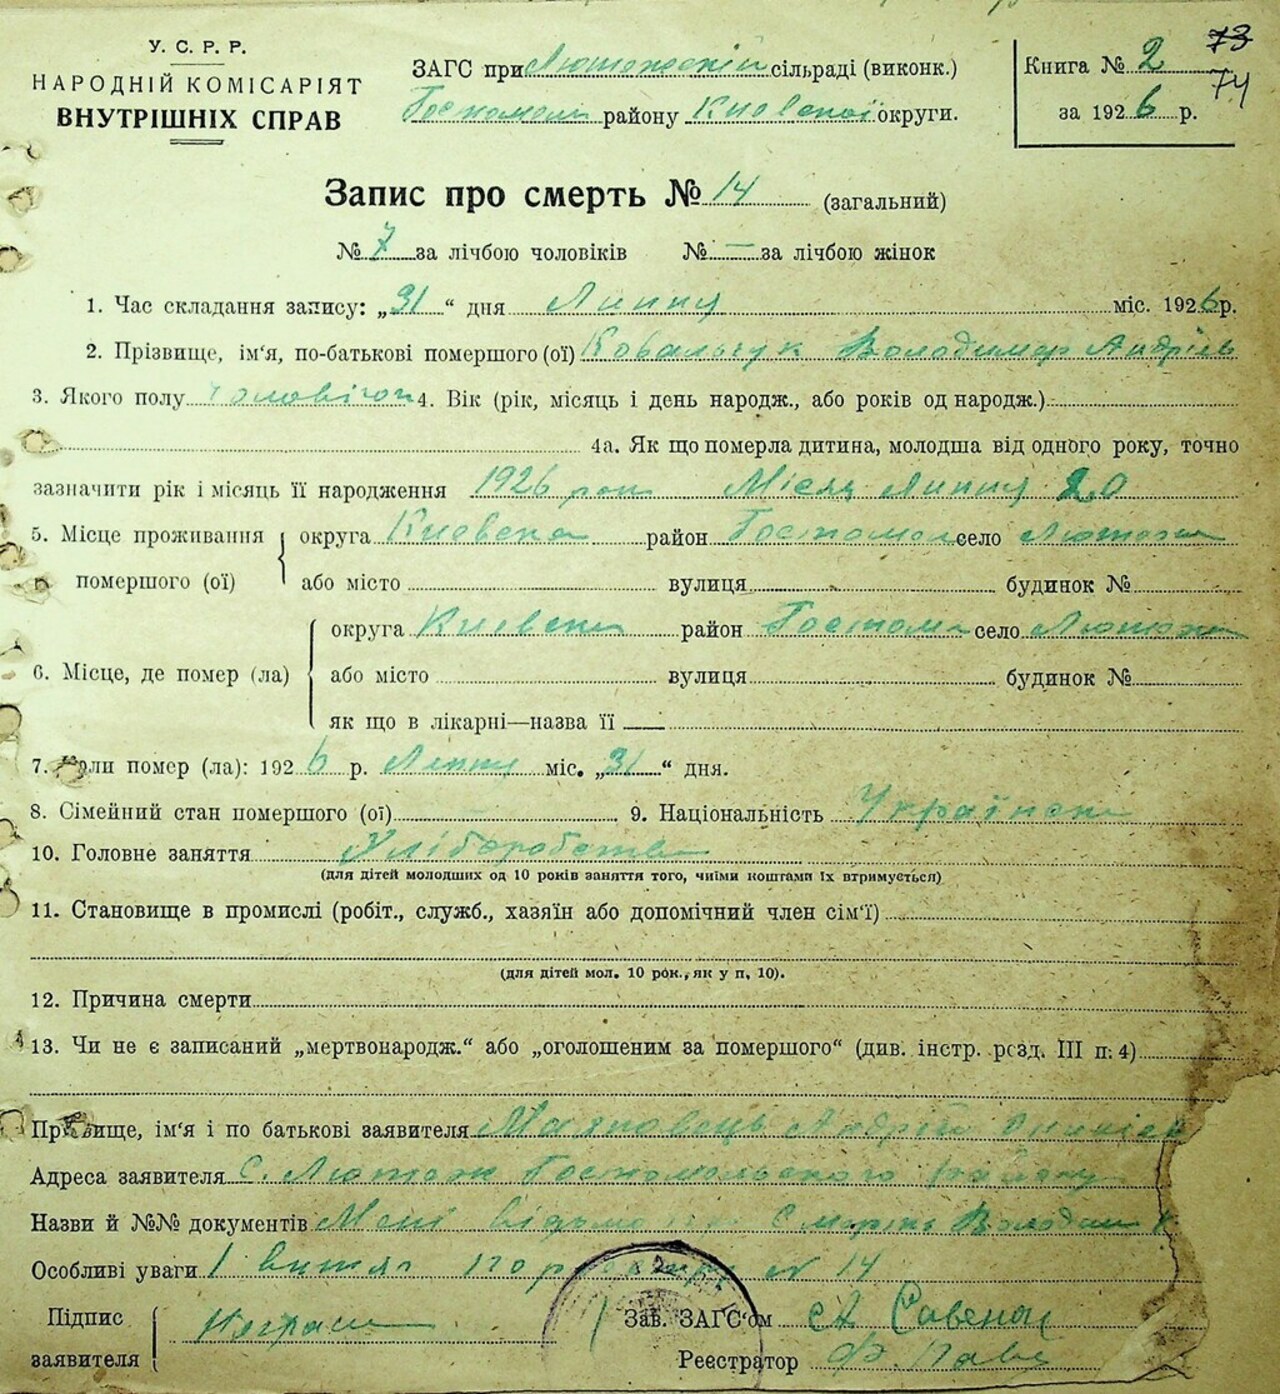 У. С. Р. Р.
НАРОДНІЙ КОМІСАРІЯТ
ВНУТРІШНІХ СПРАВ
ЗАГС при Лютожскій сільраді (виконк.)
Гостомель району Києвской округи.
Книга № 2 73
74
за 1926 р.
Запис про смерть № 14 (загальний)
№ 7 за лічбою чоловіків № — за лічбою жінок
1. Час складання запису: „31“ дня Липця міс. 1926 р.
2. Прізвище, ім'я, по-батькові помершого (ої) Ковальчук Володимир Андріїв
3. Якого полу 4. Вік (рік, місяць і день народж., або років од народж.)
4а. Як що померла дитина, молодша від одного року, точно
зазначити рік і місяць її народження 1926 рок Місяц Липця 20
5. Місце проживання помершого (ої) округа Києвска район Гостомел село Лютож
або місто вулиця будинок №
6. Місце, де помер (ла) округа Києвска район Гостом село Лютож
або місто вулиця будинок №
як що в лікарні—назва її —
7. Коли помер (ла): 1926 р. Липця міс. „31“ дня.
8. Сімейний стан помершого (ої) — 9. Національність Українец
10. Головне заняття Хліборобство
(для дітей молодших од 10 років заняття того, чиїми коштами їх втримується)
11. Становище в промислі (робіт., служб., хазяїн або допомічний член сім'ї)
(для дітей мол. 10 рок., як у п. 10).
12. Причина смерти
13. Чи не є записаний „мертвонародж.“ або „оголошеним за помершого“ (див. інстр. розд. III п. 4)
Прізвище, ім'я і по батькові заявителя Андрій
Адреса заявителя С. Лютож Гостомольского Району
Назви й №№ документів Смерть Володим
Особливі уваги 1 витяг по № 14
Підпис заявителя Неграм
Зав. ЗАГС'ом Савенок
Реєстратор